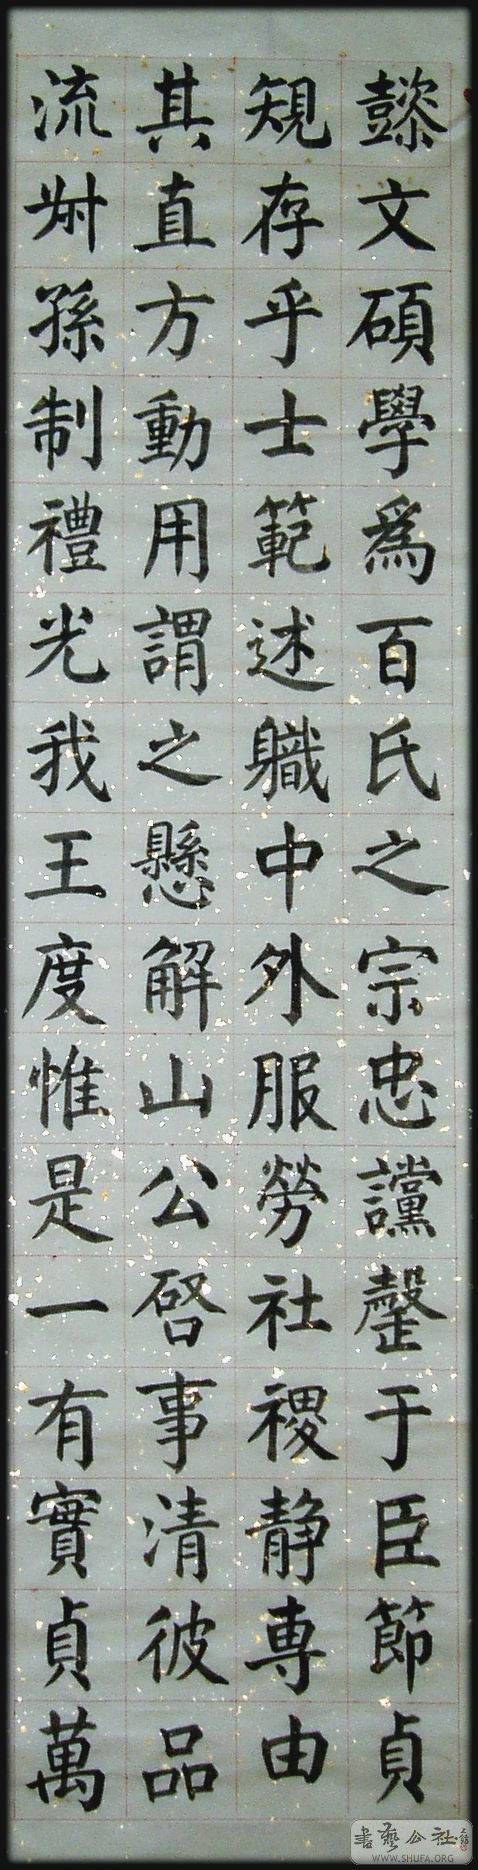 懿文碩學為百氏之宗忠讜罄于臣節貞
規存乎士範述職中外服勞社稷静專由
其直方動用謂之懸解山公啓事清彼品
流叔孫制禮光我王度惟是一有實貞萬
書藝公社
WWW.SHUFA.ORG